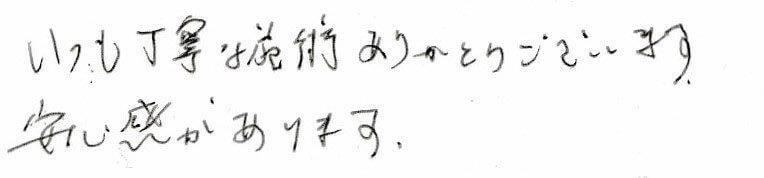 いつも丁寧な施術ありがとうございます。
安心感があります。